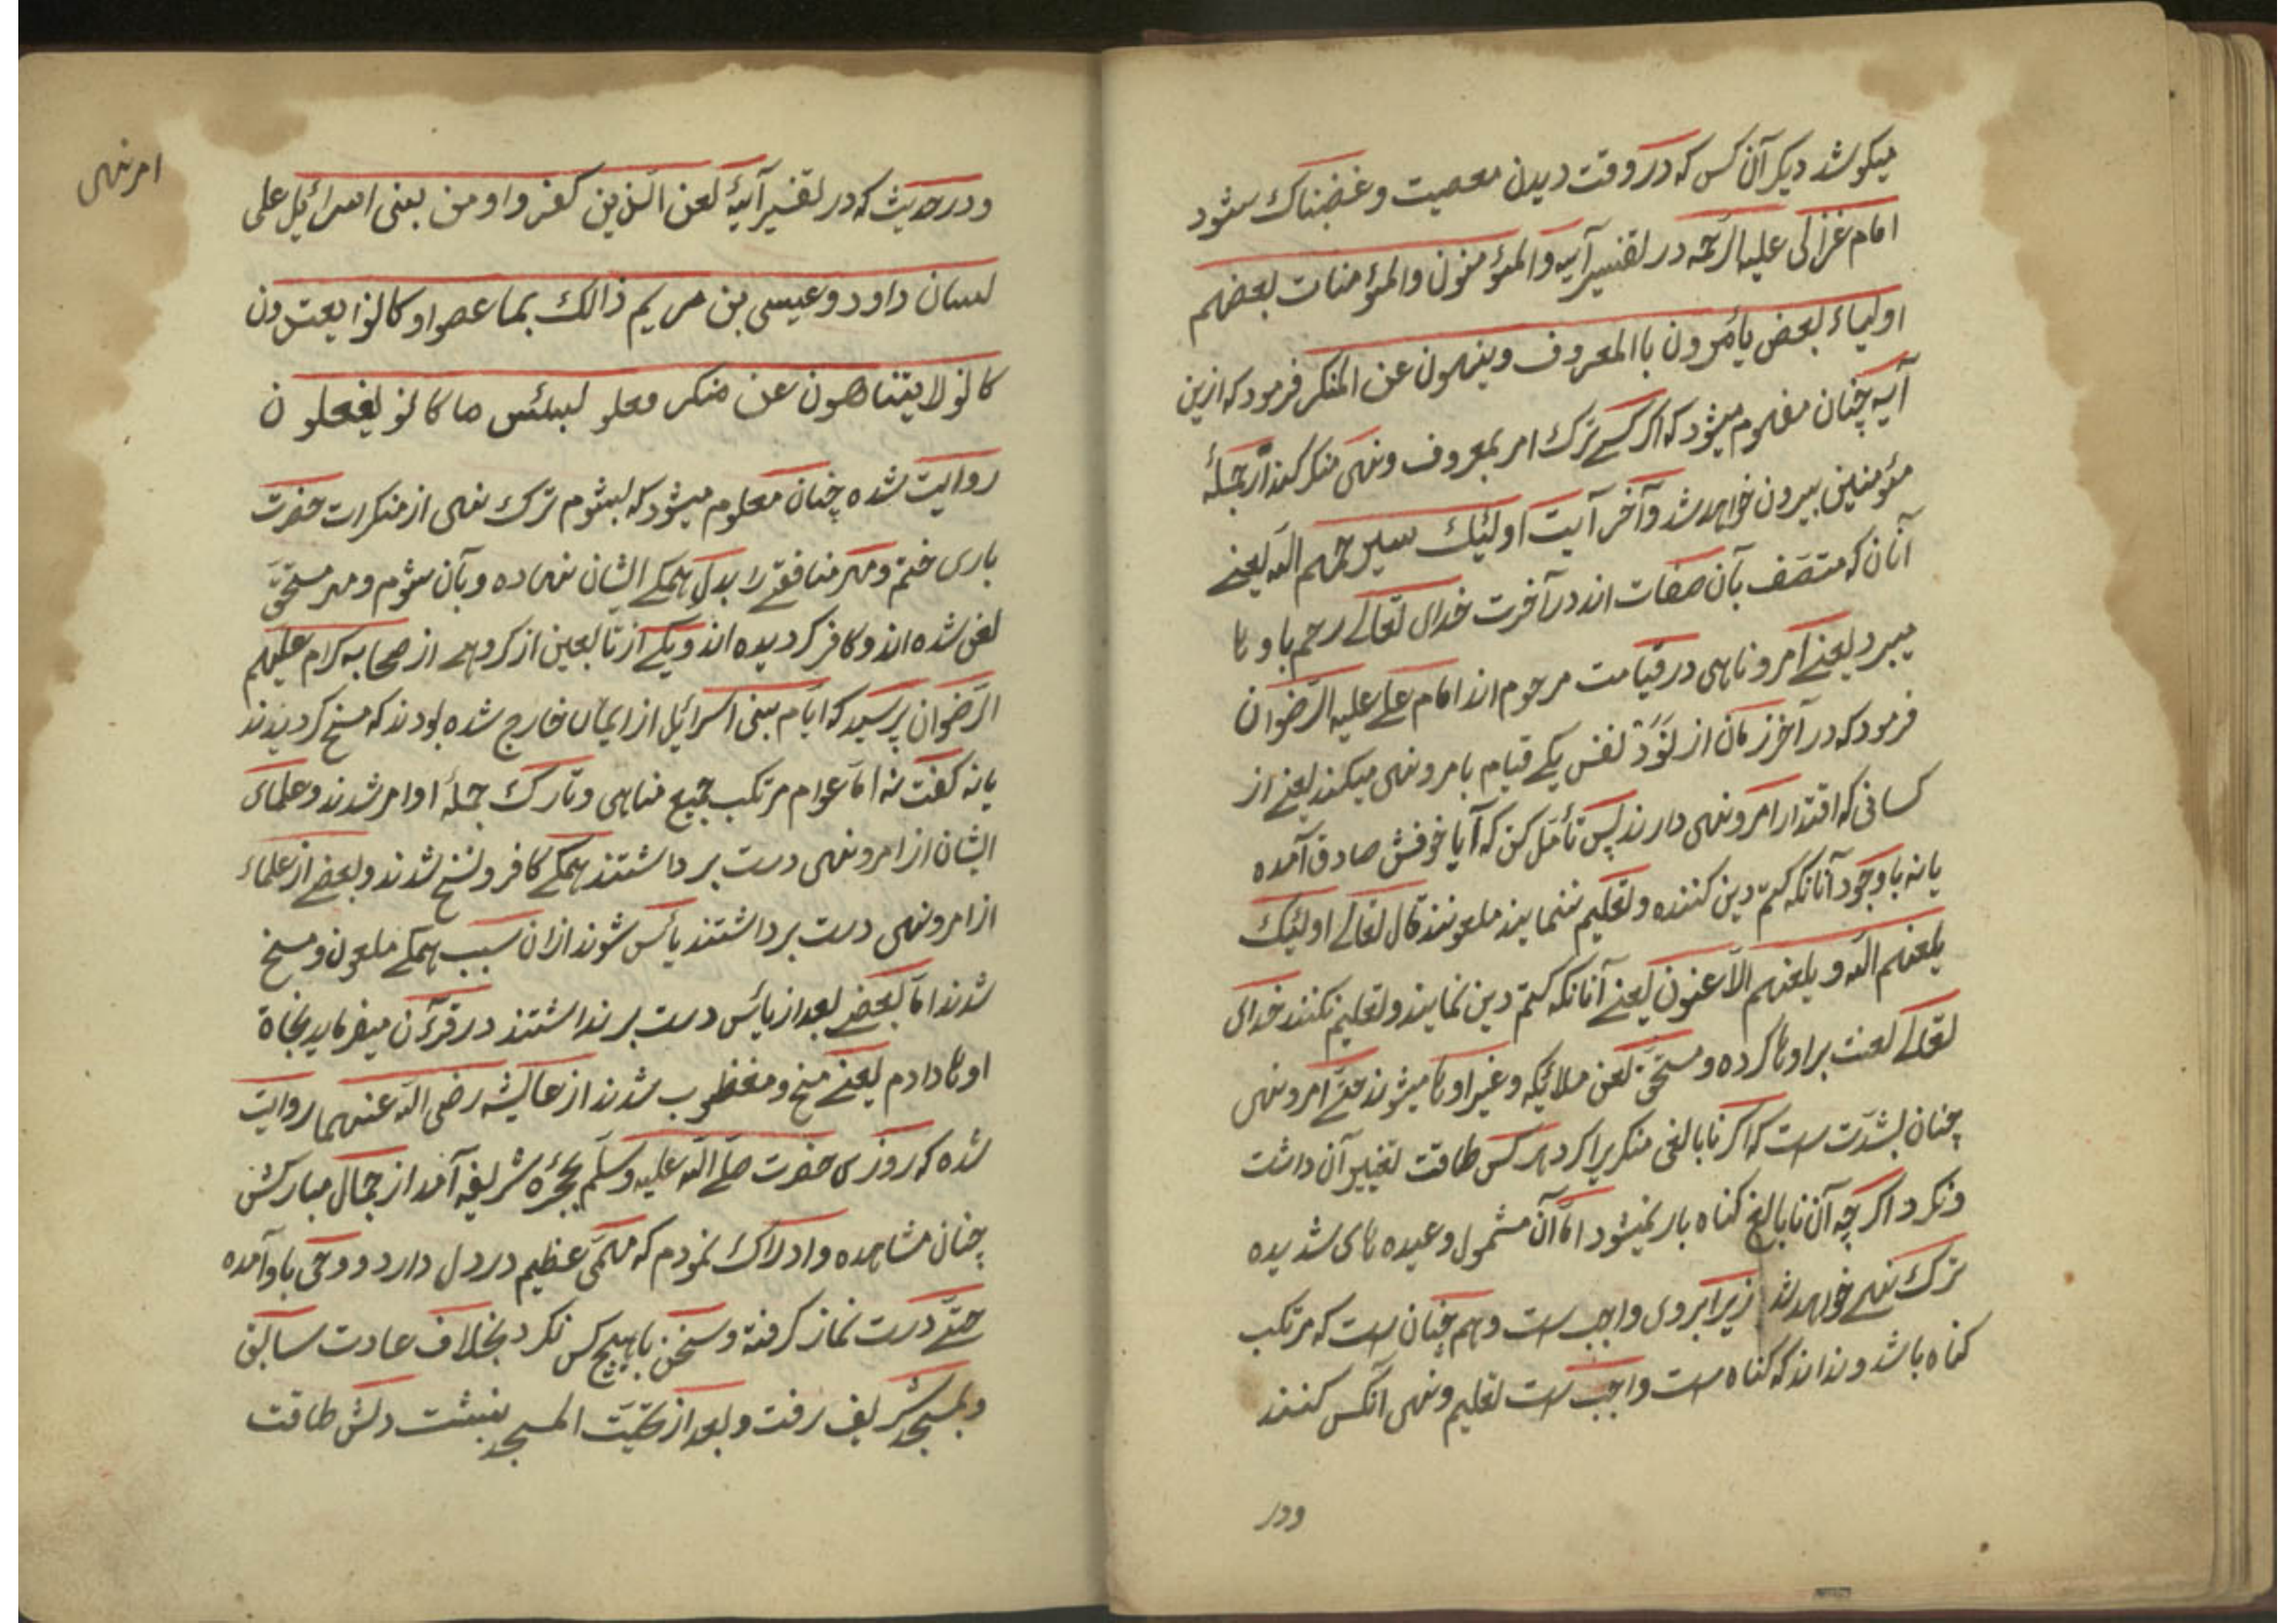 میکوشد دیکر آن کس که در وقت دیدن معصیت و غضبناک بشود
امام غزالی علیه الرحمه در تفسیر آیه والمؤمنون والمؤمنات بعضهم
اولیاء بعض یأمرون باالمعروف وینهون عن المنکر فرمود که ازین
آیه چنان مفهوم میشود که اکر کسے ترک امر بمعروف ونهی منکر کند از جملهٔ
مؤمنین بیرون خواهد شد وآخر آیت اولئیک سیرحمهم الله یعنے
آنان که متصف بآن صفات اند در آخرت خدای تعالے رحم باوها
میبرد یعنے آمر وناهی در قیامت مرحوم اند امام علے علیه الرضوان
فرمود که در آخر زمان از نود نفس یکے قیام بامر ونهی میکند یعنے از
کسانی که اقتدار امر ونهی دارند پس تأمل کن که آیا خوفش صادق آمده
یانه باوجود آنانکه کتم دین کننده وتعلیم ننمایند ملعونند قال تعالے اولئیک
یلعنهم الله ویلعنهم الاعنون یعنے آنانکه کتم دین نمایند وتعلیم نکنند خدای
تعالے لعنت بر اوها کرده ومستحق لعن ملائیکه وغیر اوها میشوند حتے امر ونهی
چنان بشدت ست که اکر نابالغی منکریرا کرد هر کس طاقت تغییر آن داشت
ونکرد اکر چه آن نابالغ کناه بار نمیشود اما آن مشمول وعیده های شدیده
ترک نهے خواهد شد زیرا بر وی واجب ست وهم چنان ست که مرتکب
کناه باشد ونداند که کناه ست واجب ست تعلیم ونهی آنکس کنند
ودر
امر نهی
ودر حدیث که در تفسیر آیهٔ لعن الذین کفرو او من بنی اسرائیل علی
لسان داود وعیسی بن مریم ذالک بما عصوا وکانوا یعتدون
کانو لا یتناهون عن منکر فعلو لبئس ما کانو یفعلون
روایت شده چنان معلوم میشود که بشوم ترک نهی از منکرات حضرت
باری ختم ومهر منافقے را بدل همکے ایشان نهاده وبآن شوم ومهر مستحق
لعن شده اند وکافر کردیده اند ویکے از تابعین از کروهے از صحابه کرام علیهم
الرضوان پرسید که ایام بنی اسرائیل از ایمان خارج شده بودند که مسخ کردیدند
یانه کفت نه اما عوام مرتکب جمیع مناهی وتارک جملهٔ اوامر شدند وعلمای
ایشان از امر ونهی دست برداشتند همکے کافر ونسخ شدند وبعضے از علماء
از امر ونهی دست برداشتند یائس شوند ازان سبب همکے ملعون ومسخ
شدند اما بعضے بعد از یائس دست برنداشتند در قرءآن میفرماید نجاة
اوها دادم یعنے مسخ ومغظوب شدند از عایشه رضی الله عنهما روایت
شده که روزی حضرت صلے الله علیه وسلم بحجره شریفه آمد از جمال مبارکش
چنان مشاهده وادراک نمودم که مهمی عظیم در دل دارد ووحی باو آمده
حتے دست نماز کرفته وسخن باهیچ کس نکرد بخلاف عادت سابق
وبمسجد شریف رفت وبعد از تحیت المسجد بنشت دلش طاقت